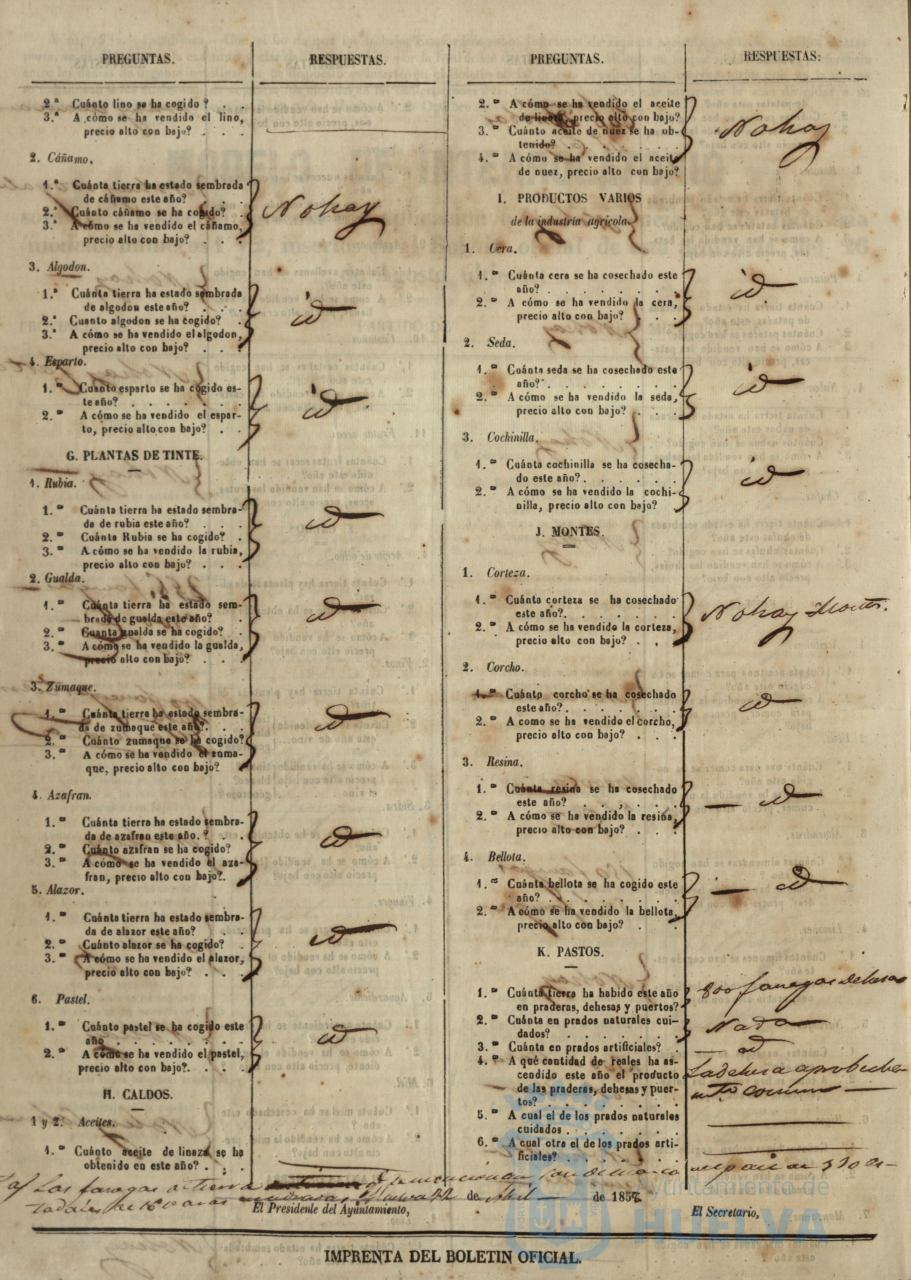 PREGUNTAS.
RESPUESTAS.
2.ª Cuánto lino se ha cogido? . .
3.ª A cómo se ha vendido el lino,
precio alto con bajo? . . .
2. Cáñamo.
1.ª Cuánta tierra ha estado sembrada
de cáñamo este año? . . .
2.ª Cuánto cáñamo se ha cogido? .
3.ª A cómo se ha vendido el cáñamo,
precio alto con bajo? . . .
No hay
3. Algodon.
1.ª Cuánta tierra ha estado sembrada
de algodon este año? . . .
2.ª Cuanto algodon se ha cogido? .
3.ª A cómo se ha vendido el algodon,
precio alto con bajo? . . .
id
4. Esparto.
1.ª Cuánto esparto se ha cogido es-
te año? . . . . . . .
2.ª A cómo se ha vendido el espar-
to, precio alto con bajo? . .
id
G. PLANTAS DE TINTE.
1. Rubia.
1.ª Cuánta tierra ha estado sembra-
da de rubia este año? . . .
2.ª Cuánta Rubia se ha cogido? .
3.ª A cómo se ha vendido la rubia,
precio alto con bajo? . . .
id
2. Gualda.
1.ª Cuánta tierra ha estado sem-
brada de gualda este año? . .
2.ª Cuanta gualda se ha cogido? .
3.ª A cómo se ha vendido la gualda,
precio alto con bajo? . . .
id
3. Zumaque.
1.ª Cuánta tierra ha estado sembra-
da de zumaque este año? . .
2.ª Cuánto zumaque se ha cogido?
3.ª A cómo se ha vendido el zuma-
que, precio alto con bajo? .
id
4. Azafran.
1.ª Cuánta tierra ha estado sembra-
da de azafran este año. ? . .
2.ª Cuánto azafran se ha cogido?
3.ª A cómo se ha vendido el aza-
fran, precio alto con bajo? .
id
5. Alazor.
1.ª Cuánta tierra ha estado sembra-
da de alazor este año? . .
2.ª Cuánto alazor se ha cogido? .
3.ª A cómo se ha vendido el alazor,
precio alto con bajo? . . .
id
6. Pastel.
1.ª Cuánto pastel se ha cogido este
año . . . . . . . .
2.ª A cómo se ha vendido el pastel,
precio alto con bajo? . . .
id
H. CALDOS.
1 y 2. Aceites.
1.ª Cuánto aceite de linaza se ha
obtenido en este año? . . .
PREGUNTAS.
RESPUESTAS:
2.ª A cómo se ha vendido el aceite
de linaza, precio alto con bajo?
3.ª Cuánto aceite de nuez se ha ob-
tenido? . . . . . . .
4.ª A cómo se ha vendido el aceite
de nuez, precio alto con bajo?
No hay
I. PRODUCTOS VARIOS
de la industria agrícola.
1. Cera.
1.ª Cuánta cera se ha cosechado este
año? . . . . . . .
2.ª A cómo se ha vendido la cera,
precio alto con bajo? . . .
id.
2. Seda.
1.ª Cuánta seda se ha cosechado este
año? . . . . . . .
2.ª A cómo se ha vendido la seda,
precio alto con bajo? . . .
id
3. Cochinilla.
1.ª Cuánta cochinilla se ha cosecha-
do este año? . . . . .
2.ª A cómo se ha vendido la cochi-
nilla, precio alto con bajo?
id
J. MONTES.
1. Corteza.
1.ª Cuánta corteza se ha cosechado
este año? . . . . . .
2.ª A cómo se ha vendido la corteza,
precio alto con bajo? . . .
No hay Montes.
2. Corcho.
1.ª Cuánto corcho se ha cosechado
este año? . . . . . .
2.ª A como se ha vendido el corcho,
precio alto con bajo? . . .
id
3. Resina.
1.ª Cuánta resina se ha cosechado
este año? . . . . . .
2.ª A cómo se ha vendido la resina,
precio alto con bajo? . . .
— id
4. Bellota.
1.ª Cuánta bellota se ha cogido este
año? . . . . . . .
2.ª A cómo se ha vendido la bellota,
precio alto con bajo? . . .
— id
K. PASTOS.
1.ª Cuánta tierra ha habido este año
en praderas, dehesas y puertos?
800 fanegas dehesas
2.ª Cuánta en prados naturales cui-
dados? . . . . . . .
Nada
3.ª Cuánta en prados artificiales? .
— id
4.ª A qué cantidad de reales ha as-
cendido este año el producto
de las praderas, dehesas y puer-
tos? . . . . . . . .
La dehesa aprobecha
mto comun —
5.ª A cual el de los prados naturales
cuidados . . . . . .
6.ª A cual otra el de los prados arti-
ficiales? . . . . . .
Las fanegas de tierra que se mencionan son de marco
Huelva 22 de Abril de 1857.
El Presidente del Ayuntamiento,
El Secretario,
Ayuntamiento de
HUELVA
IMPRENTA DEL BOLETIN OFICIAL.